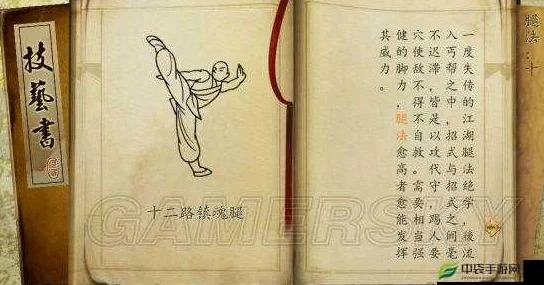 腿法：十
一度失传的江湖腿法绝学，後流
入丐帮之中，招式与招式之间毫
不迟滞，皆是以攻代守，踢人要
穴使敌不得不自救。需要相当强
健的脚力，腿法愈高者愈能发挥
其威力。
十二路镇魂腿
技藝書
GAMERSKY
中袋手游网